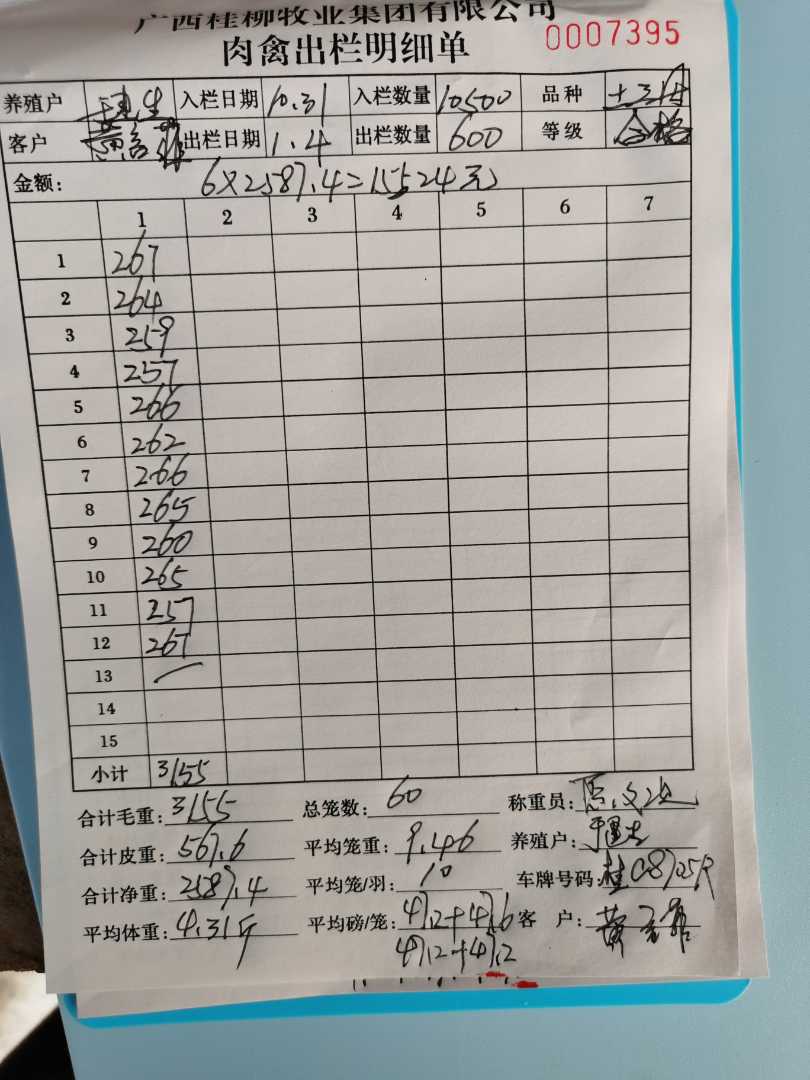 广西桂柳牧业集团有限公司
肉禽出栏明细单 0007395
养殖户 入栏日期 10.31 入栏数量 10500 品种
客户 出栏日期 1.4 出栏数量 600 等级 合格
金额: 6×2587.4=15524元
1 2 3 4 5 6 7
1 267
2 264
3 259
4 257
5 266
6 262
7 266
8 265
9 260
10 265
11 257
12 267
13
14
15
小计 3155
合计毛重: 3155 总笼数: 60 称重员:
合计皮重: 567.6 平均笼重: 9.46 养殖户:
合计净重: 2587.4 平均笼/羽: 10 车牌号码: 桂C8705R
平均体重: 4.31斤 平均磅/笼: 47.2+47.6 客 户:
47.2+47.2